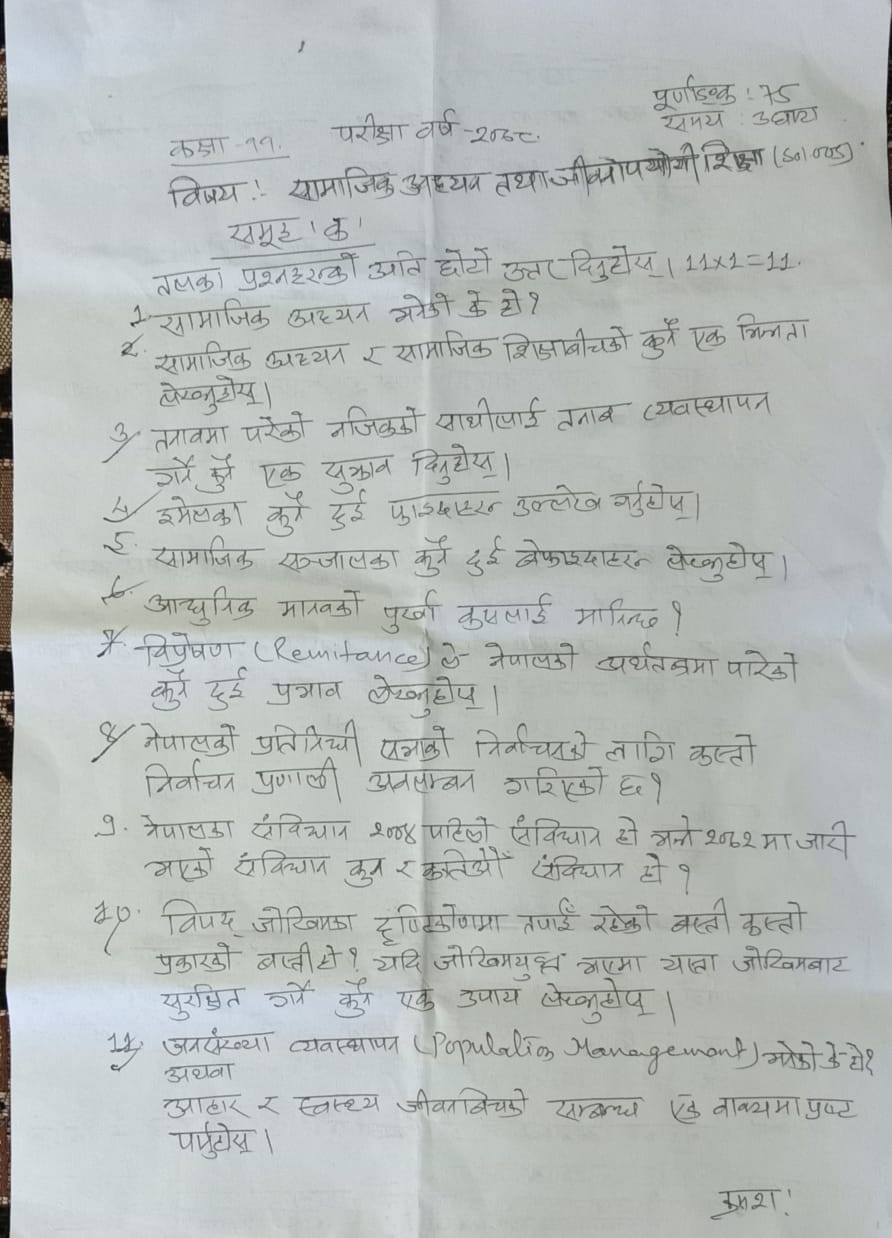 पूर्णाङ्क : 75
समय : ३घण्टा
कक्षा -११. परीक्षा वर्ष -२०७८.
विषय : सामाजिक अध्ययन तथा जीवनोपयोगी शिक्षा
समूह 'क'
तलका प्रश्नहरूको अति छोटो उत्तर दिनुहोस् । 11×1=11.
1. सामाजिक अध्ययन भनेको के हो ?
2. सामाजिक अध्ययन र सामाजिक शिक्षाबीचको कुनै एक भिन्नता
लेख्नुहोस् ।
3. तनावमा परेको नजिकको साथीलाई तनाव व्यवस्थापन
गर्ने कुनै एक सुझाव दिनुहोस् ।
4. इमेलका कुनै दुई फाइदाहरू उल्लेख गर्नुहोस् ।
5. सामाजिक सञ्जालका कुनै दुई बेफाइदाहरू लेख्नुहोस् ।
6. आधुनिक मानवको पुर्खा कसलाई मानिन्छ ?
7. विप्रेषण (Remitance) ले नेपालको अर्थतन्त्रमा पारेको
कुनै दुई प्रभाव लेख्नुहोस् ।
8. नेपालको प्रतिनिधी सभाको निर्वाचनको लागि कस्तो
निर्वाचन प्रणाली अवलम्बन गरिएको छ ?
9. नेपालका संविधान २००४ पहिलो संविधान हो भने २०७२ मा जारी
भएको संविधान कुन र कतिओँ संविधान हो ?
10. विपद् जोखिमका दृष्टिकोणमा तपाईँ रहेको बस्ती कस्तो
प्रकारको बस्ती हो ? यदि जोखिमयुक्त भएमा यस्ता जोखिमबाट
सुरक्षित गर्ने कुनै एक उपाय लेख्नुहोस् ।
11. जनसंख्या व्यवस्थापन (Population Management) भनेको के हो ?
अथवा
आहार र स्वास्थ्य जीवनबिचको सम्बन्ध एक वाक्यमा प्रष्ट
पार्नुहोस् ।
क्रमश: